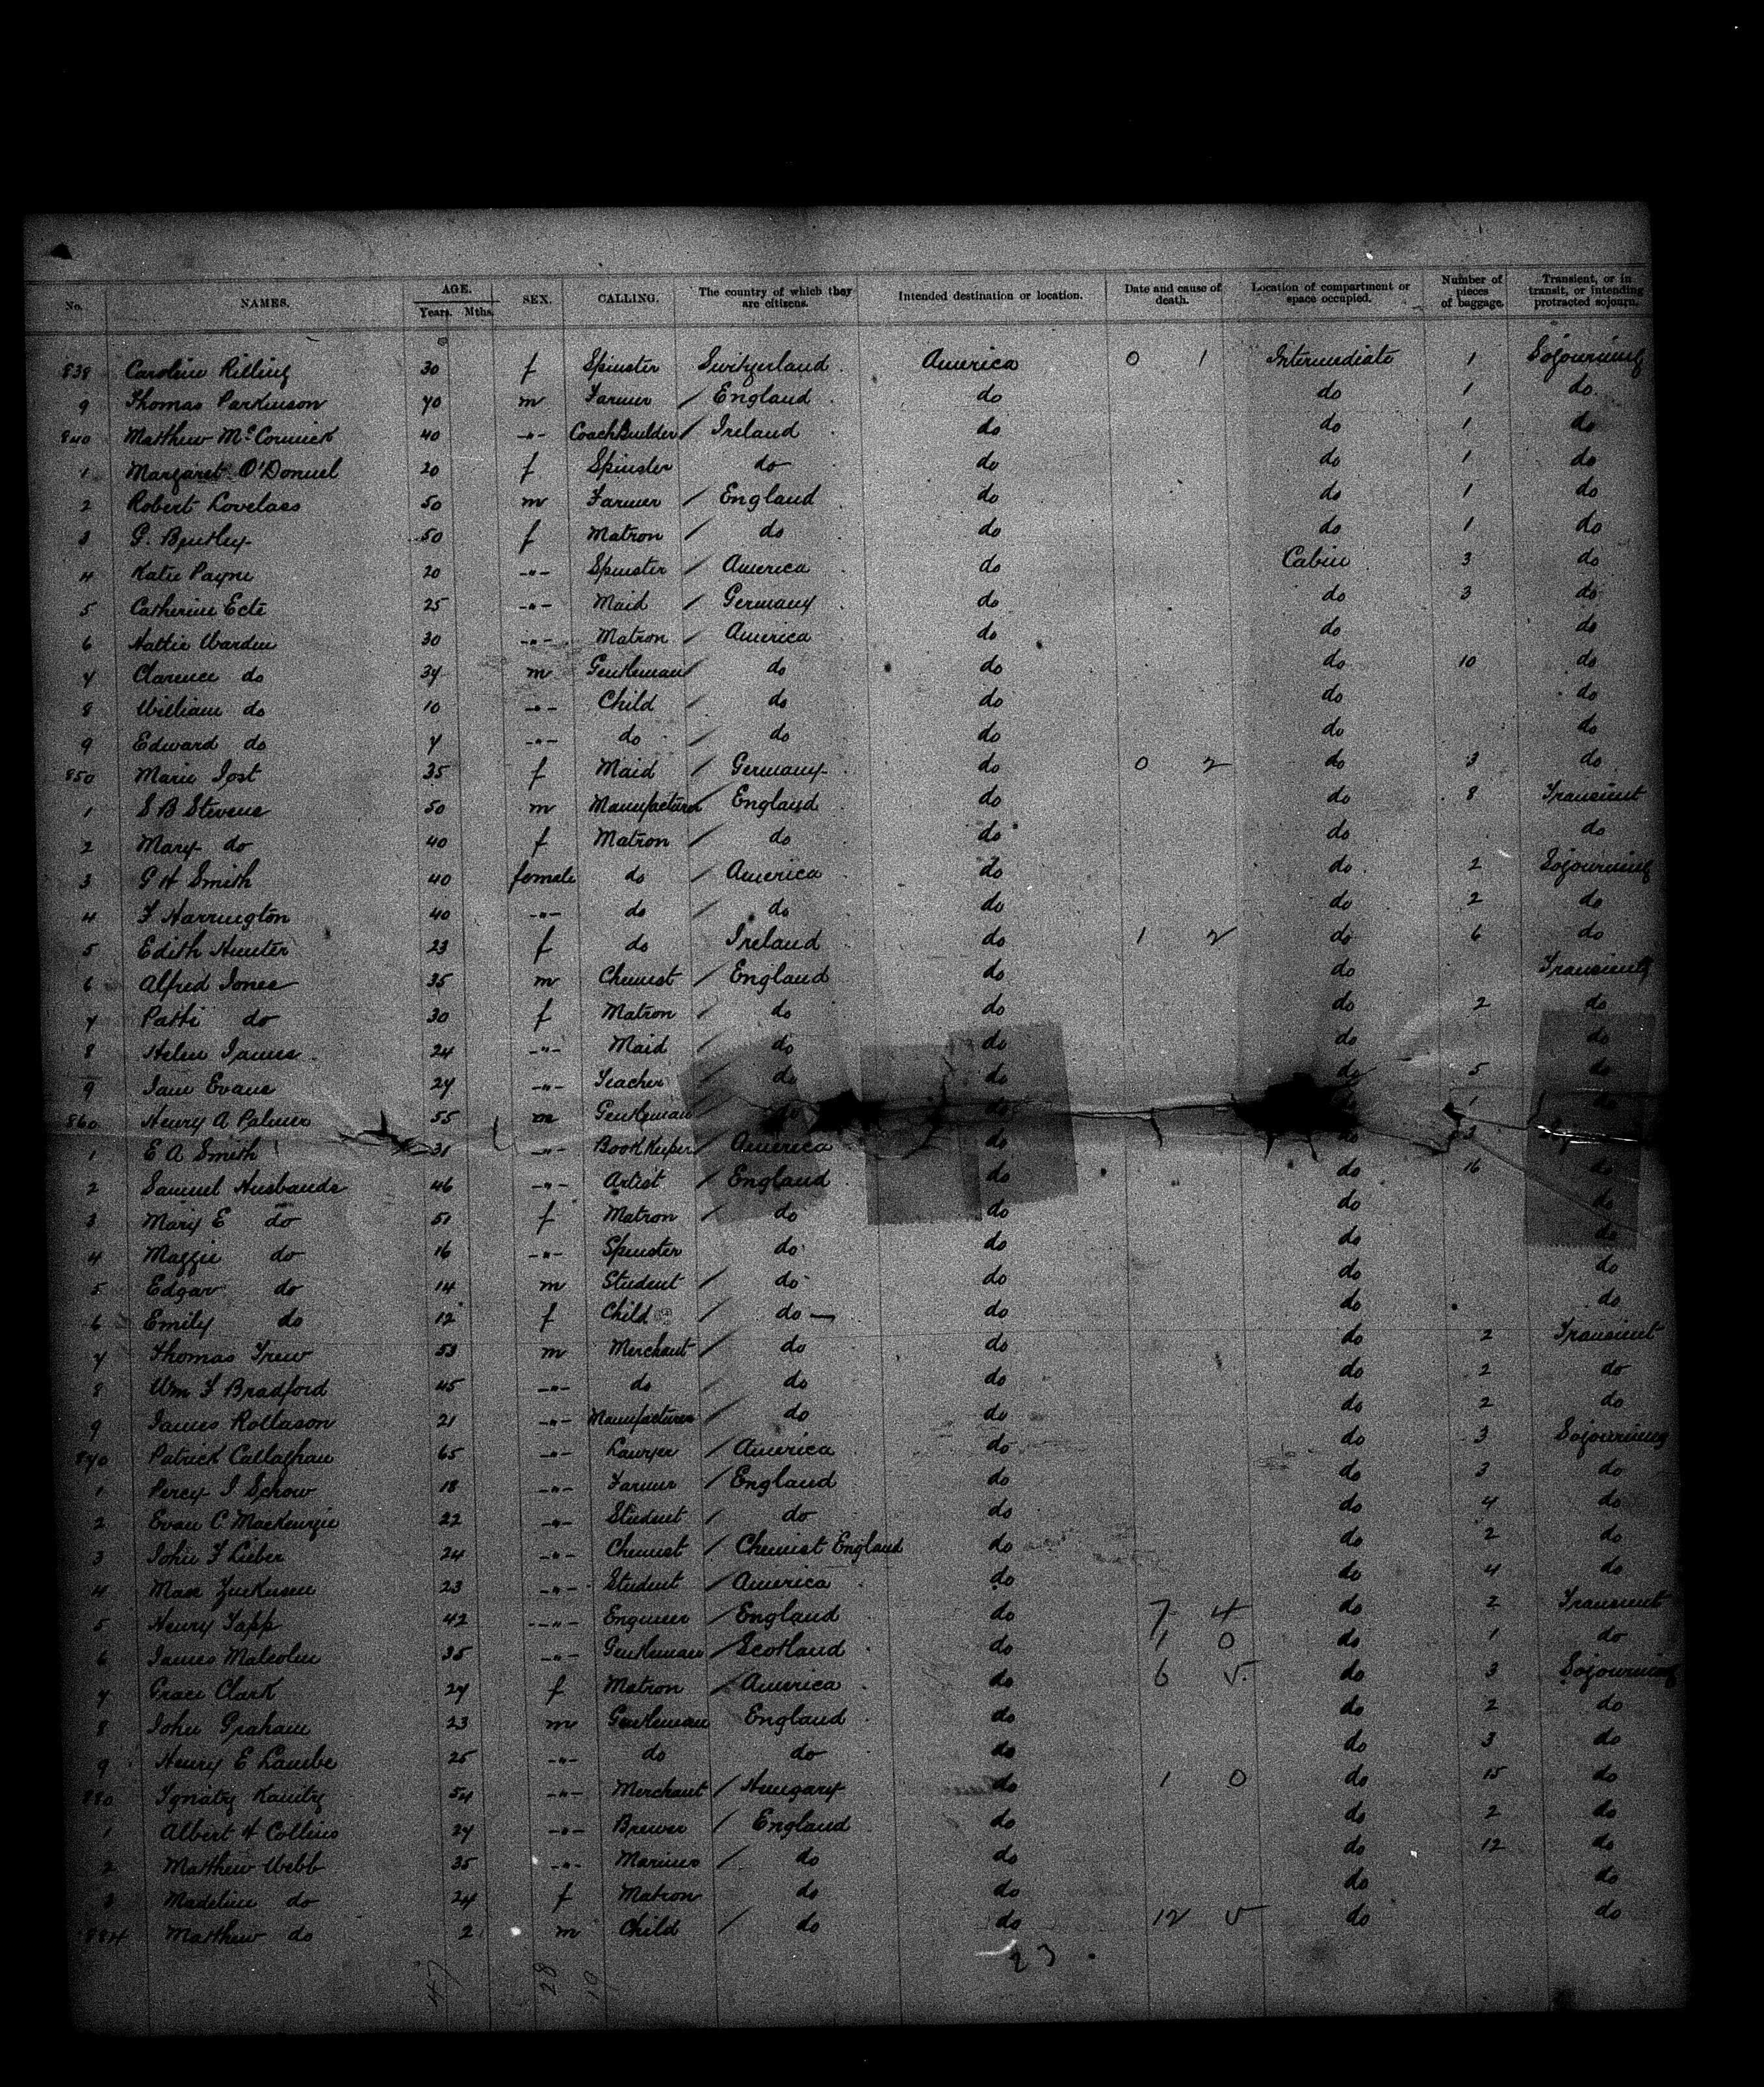 No. NAMES. AGE. Years. Mths. SEX. CALLING. The country of which they are citizens. Intended destination or location. Date and cause of death. Location of compartment or space occupied. Number of pieces of baggage. Transient, or in transit, or intending protracted sojourn.
838 Caroline Rilling 30 f Spinster Switzerland America 0 1 Intermediate 1 Sojourning
9 Thomas Parkinson 40 m Farmer / England do do 1 do
840 Matthew McCormick 40 -"- CoachBuilder / Ireland do do 1 do
1 Margaret O'Donnel 20 f Spinster do do do 1 do
2 Robert Lovelass 50 m Farmer / England do do 1 do
3 G. Bentley 50 f Matron / do do do 1 do
4 Katie Payne 20 -"- Spinster / America do Cabin 3 do
5 Catherine 25 -"- Maid / Germany do do 3 do
6 Hattie Warden 30 -"- Matron / America do do do
7 Clarence do 37 m Gentleman / do do do 10 do
8 William do 10 -"- Child / do do do do
9 Edward do 7 -"- do / do do do do
850 Marie Jost 35 f Maid / Germany do 0 2 do 3 do
1 S B Stevens 50 m Manufacturer / England do do 8 Transient
2 Mary do 40 f Matron / do do do do
3 G H Smith 40 female do / America do do 2 Sojourning
4 F Harrington 40 -"- do / do do do 2 do
5 Edith Hunter 23 f do Ireland do 1 2 do 6 do
6 Alfred Jones 35 m Chemist / England do do Transient
7 Patti do 30 f Matron / do do do 2 do
8 Helen James 24 -"- Maid / do do do do
9 Jane Evans 27 -"- Teacher / do do do 5 do
860 Henry A Palmer 55 m Gentleman do do 1 do
1 E A Smith 31 -"- BookKeeper / America do do 3
2 Samuel Husbands 46 -"- Artist / England do do 16 do
3 Mary E do 51 f Matron / do do do do
4 Maggie do 16 -"- Spinster do do do do
5 Edgar do 14 m Student / do do do do
6 Emily do 12 f Child / do do do do
7 Thomas Trew 53 m Merchant / do do do 2 Transient
8 Wm F Bradford 45 -"- do / do do do 2 do
9 James Rollason 21 -"- Manufacturer / do do do 2 do
870 Patrick Callaghan 65 -"- Lawyer / America do do 3 Sojourning
1 Percy J Schow 18 -"- Farmer / England do do 3 do
2 Evan C MacKenzie 22 -"- Student / do do do 4 do
3 John F Lieber 24 -"- Chemist / Chemist England do do 2 do
4 Max 23 -"- Student / America do do 4 do
5 Henry Tapp 42 -"- Engineer / England do 7 4 do 2 Transient
6 James Malcolm 35 -"- Gentleman / Scotland do 1 0 do 1 do
7 Grace Clark 27 f Matron / America do 6 5 do 3 Sojourning
8 John Graham 23 m Gentleman England do do 2 do
9 Henry E Lambe 25 -"- do do do do 3 do
880 Ignatz 54 -"- Merchant / Hungary do 1 0 do 15 do
1 Albert H Collins 27 -"- Brewer / England do do 2 do
2 Matthew Webb 35 -"- Mariner / do do do 12 do
3 Madeline do 24 f Matron do do do do
884 Matthew do 2 m Child / do do 12 5 do do
47 28 19 23